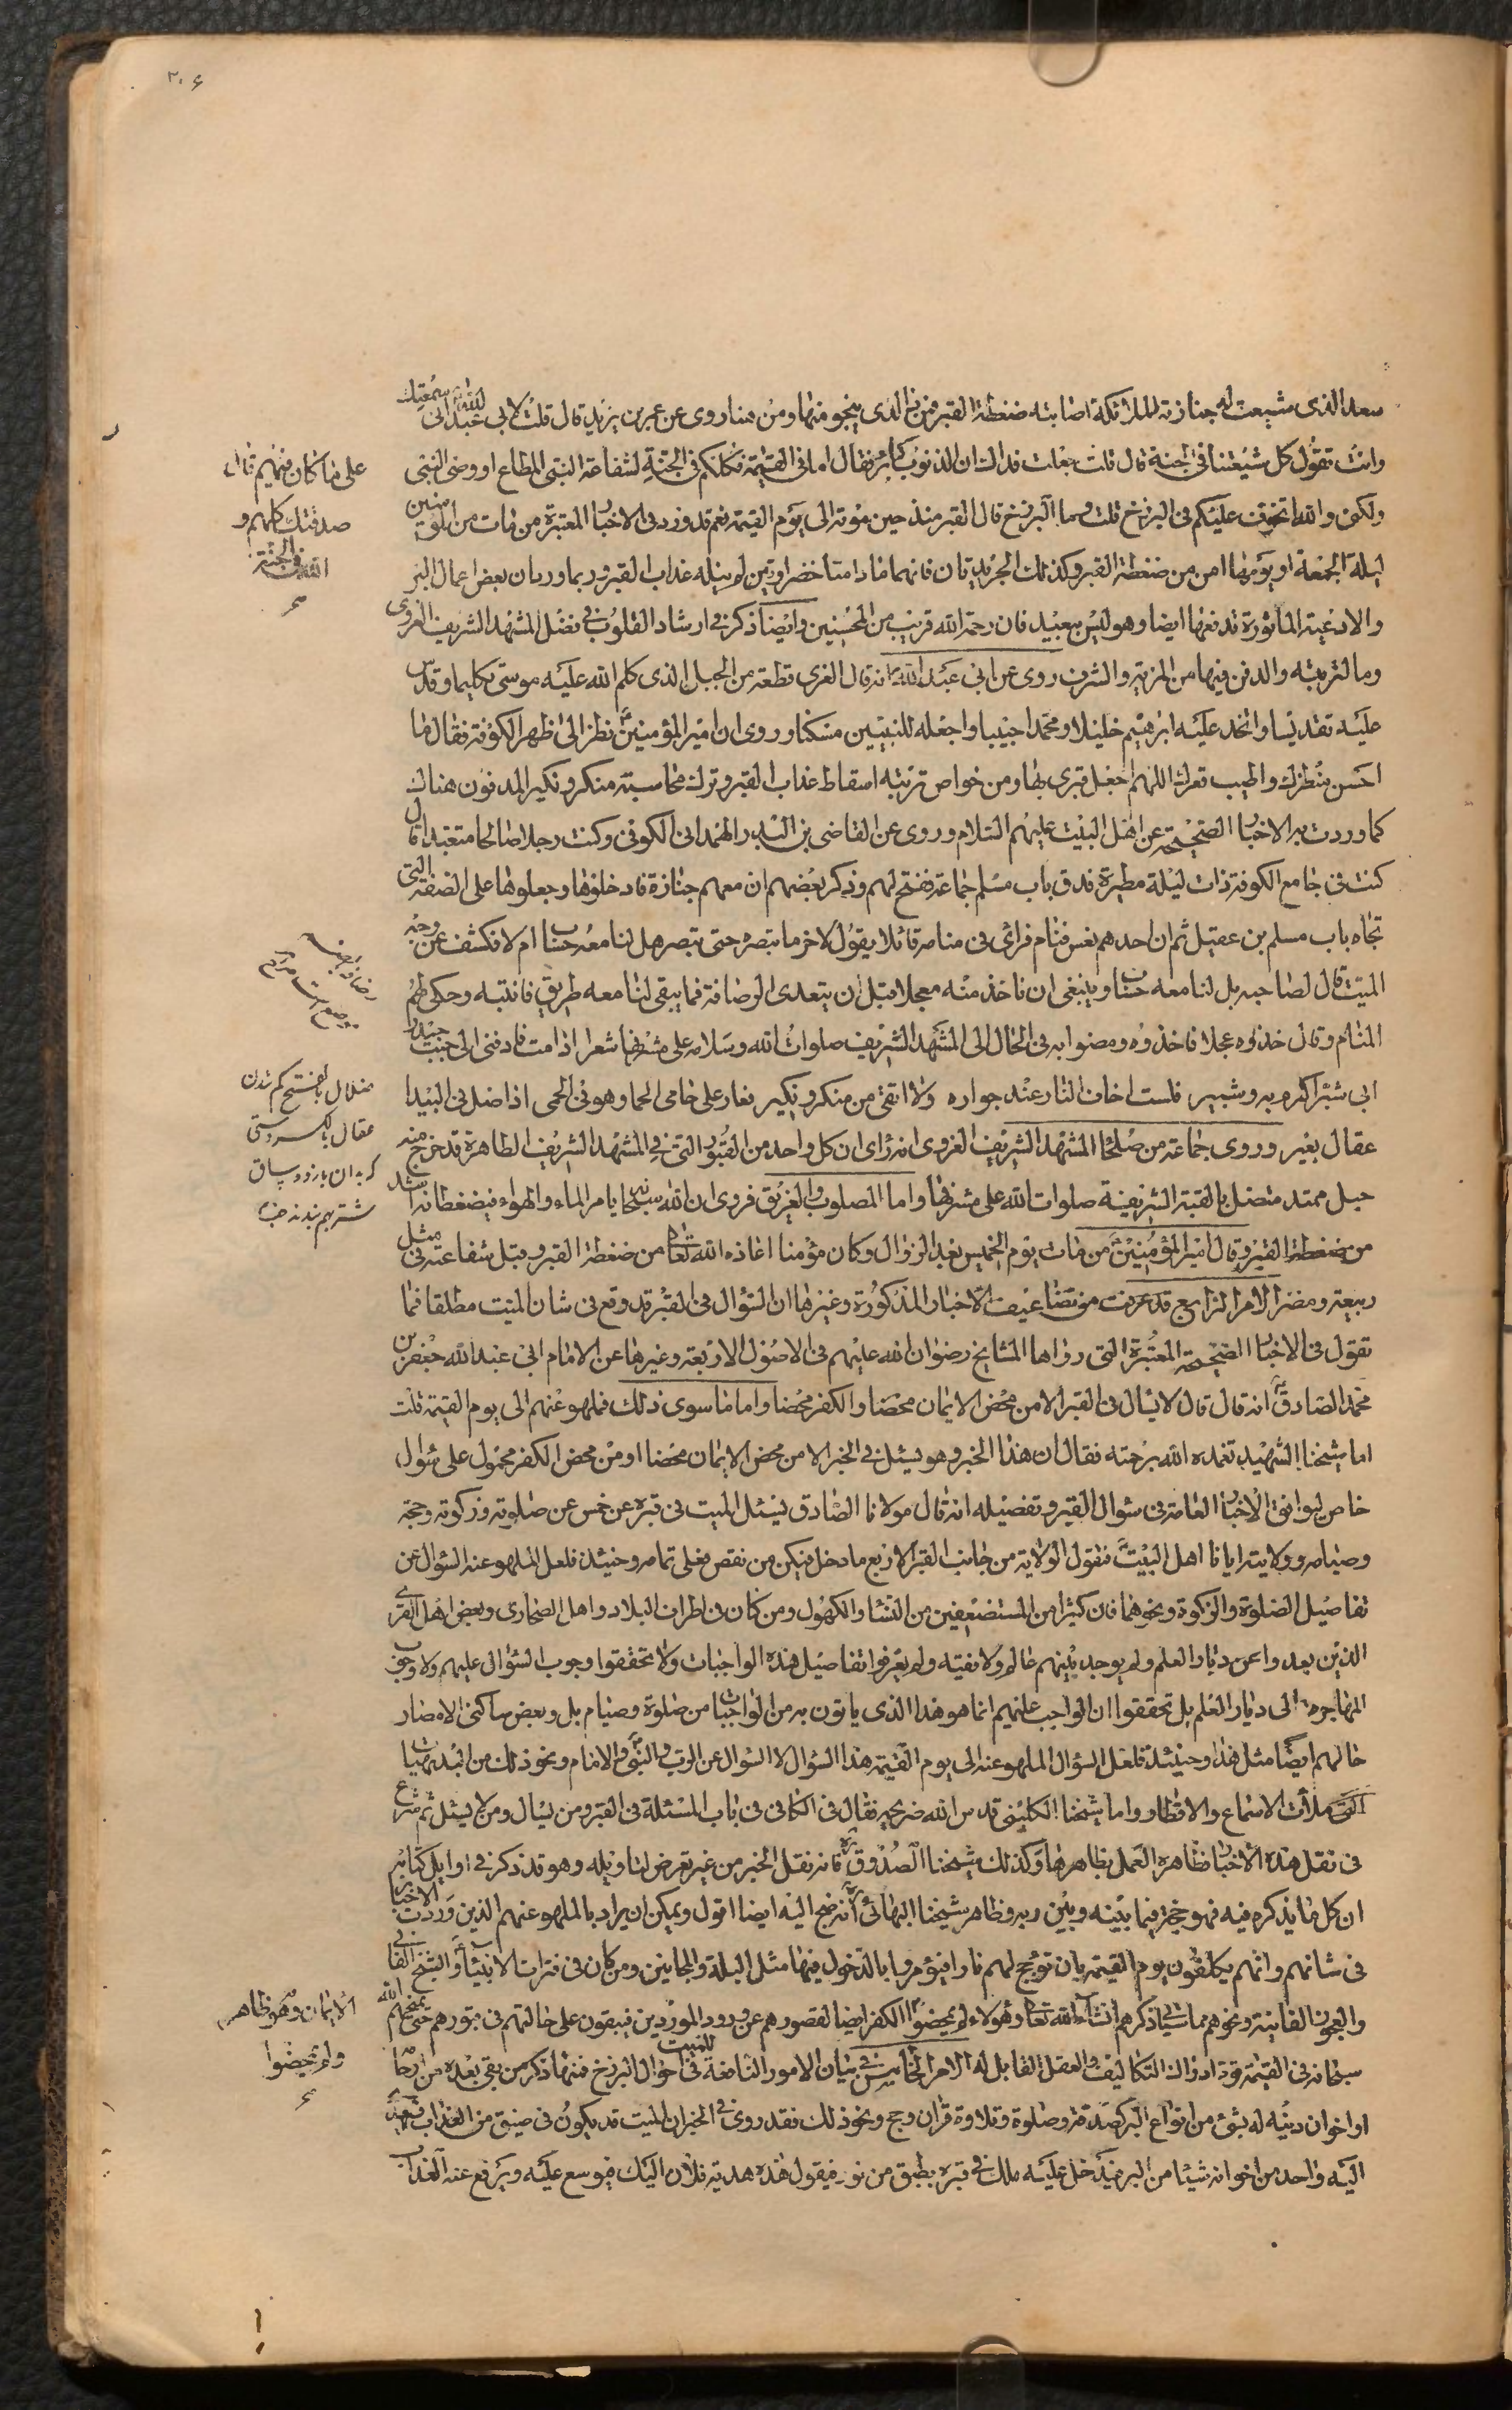 ٢٠۶
سعد الذى شيعت له جنازته الملائكة اصابته ضغطة القبر فمن ذا الذى ينجو منها ومن هنا روى عن عمر بن يزيد قال قلت لابى عبد الله انى سمعتك
وانت تقول كل شيعتنا فى الجنة قال قلت جعلت فداك ان الذنوب كبائر فقال اما فى القيمة فكلكم فى الجنة لشفاعة النبى المطاع او وصى النبى
ولكنى والله اتخوف عليكم فى البرزخ قلت وما البرزخ قال القبر منذ حين موته الى يوم القيمة نعم قد ورد فى الاخبار المعتبرة من مات من المؤمنين
ليلة الجمعة او يومها امن من ضغطة القبر وكذلك الجريدتان فانهما ما دامتا خضراوتين لم ينله عذاب القبر وربما ورد ان بعض اعمال البر
والادعية الماثورة تدفعها ايضا وهو ليس ببعيد فان رحمة الله قريب من المحسنين وايضا ذكر فى ارشاد القلوب فى فضل المشهد الشريف الغروى
وما لتربته والدفن فيها من المزية والشرف روى عن ابى عبد الله انه قال الغرى قطعة من الجبل الذى كلم الله عليه موسى تكليما وقدس
عليه تقديسا واتخذ عليه ابرهيم خليلا ومحمدا حبيبا واجعله للنبيين مسكنا وروى ان امير المؤمنين نظر الى ظهر الكوفة فقال ما
احسن منظرك واطيب قعرك اللهم اجعل قبرى بها ومن خواص تربته اسقاط عذاب القبر وترك محاسبة منكر ونكير المدفون هناك
كما وردت به الاخبار الصحيحة عن اهل البيت عليهم السلام وروى عن القاضى بن البدر الهمدانى الكوفى وكنت رجلا صالحا متعبدا قال
كنت فى جامع الكوفة ذات ليلة مطيرة فدق باب مسلم جماعة ففتح لهم وذكر بعضهم ان معهم جنازة فادخلوها وجعلوها على الصفة التى
تجاه باب مسلم بن عقيل ثم ان احدهم نعس فنام فراى فى منامه قائلا يقول لاخر ما تبصره حتى تبصر هل لنا معه حساب ام لا فكشف عن وجه
الميت قال لصاحبه بل لنا معه حساب وينبغى ان ناخذ منه معجلا قبل ان يتعدى الرصافة فما يبقى لنا معه طريق فانتبه وحكى لهم
المنام وقال خذوه عجلا فاخذوه ومضوا به فى الحال الى المشهد الشريف صلوات الله وسلامه على مشرفها شعر اذا مت فادفنى الى جنب حيدر
ابى شبر اكرم به وشبير فلست اخاف النار عند جواره ولا اتقى من منكر ونكير فعار على حامى الحما وهو فى الحمى اذا ضل فى البيدا
عقال بغير وروى جماعة من صلحا المشهد الشريف الغروى انه راى ان كل واحد من القبور التى فى المشهد الشريف الطاهرة قد خرج منه
حبل ممتد متصل بالقبة الشريفة صلوات الله على مشرفها واما المصلوب والغريق فروى ان الله سبحانه يامر الماء والهواء فيضغطانه اشد
من ضغطة القبر وقال امير المؤمنين من مات يوم الخميس بعد الزوال وكان مؤمنا اعاذه الله تعالى من ضغطة القبر وقبل شفاعته فى مثل
ربيعة ومضر الامر الرابع قد عرفت من تضاعيف الاخبار المذكورة وغيرها ان السؤال فى القبر قد وقع فى شان الميت مطلقا فما
تقول فى الاخبار الصحيحة المعتبرة التى رواها المشايخ رضوان الله عليهم فى الاصول الاربعة وغيرها عن الامام ابى عبد الله جعفر بن
محمد الصادق انه قال قال لا يسال فى القبر الا من محض الايمان محضا والكفر محضا واما ما سوى ذلك فملهو عنهم الى يوم القيمة قلت
اما شيخنا الشهيد تغمده الله برحمته فقال ان هذا الخبر وهو يسئل فى الخبر الا من محض الايمان محضا او من محض الكفر محمول على سؤال
خاص ليوافق الاخبار العامة فى سؤال القبر وتفصيله انه قال مولانا الصادق يسئل الميت فى قبره عن خمس عن صلوته وزكوته وحجه
وصيامه وولايته ايانا اهل البيت فتقول الولاية من جانب القبر الاربع ما دخل فيكن من نقص فعلى تمامه وحينئذ فلعل الملهو عنه السؤال عن
تفاصيل الصلوة والزكوة ونحوهما فان كثيرا من المستضعفين من النسا والكهول ومن كان فى اطراف البلاد واهل الصحارى وبعض اهل القرى
الذين بعدوا عن ديار العلم ولم يوجد بينهم عالم ولا فقيه ولم يعرفوا تفاصيل هذه الواجبات ولا تحققوا وجوب السؤال عليهم ولا وجوب
المهاجرة الى ديار العلم بل تحققوا ان الواجب عليهم انما هو هذا الذى ياتون به من الواجبات من صلوة وصيام بل وبعض ساكنى الامصار
حالهم ايضا مثل هذا وحينئذ فلعل السؤال الملهو عنه الى يوم القيمة هذا السؤال لا السؤال عن الرب والنبى والامام ونحو ذلك من البديهيات
التى ملأت الاسماع والاقطار واما شيخنا الكلينى قدس الله ضريحه فقال فى الكافى فى باب المسئلة فى القبر ومن يسال ومن لا يسئل ثم شرع
فى نقل هذه الاخبار فظاهره العمل بظاهرها وكذلك شيخنا الصدوق فانه نقل الخبر من غير تعرض لتاويله وهو قد ذكر فى اوايل كتابه
ان كل ما يذكره فيه فهو حجة فيما بينه وبين ربه وظاهر شيخنا البهائى انه جنح اليه ايضا اقول ويمكن ان يراد بالملهو عنهم الذين وردت الاخبار
فى شانهم وانهم يكلفون يوم القيمة بان تؤجج لهم نار فيؤمروا بالدخول فيها مثل البله والمجانين ومن كان فى فترات الانبياء والشيخ الفانى
والعجوز الفانية ونحوهم مما سياتى ذكرهم انشاء الله تعا وهؤلاء لم يمحضوا الكفر ايضا لقصورهم عن ورود الموردين فيبقون على حالتهم فى قبورهم حتى يمنحهم الله
سبحانه فى القيمة قوة ادراك التكاليف والعقل القابل له الامر الخامس فى بيان الامور النافعة للميت فى احوال البرزخ فمنها ذكر من بقى بعده من ارحا
او اخوان دينيه له بشئ من انواع البر كصدقة وصلوة وتلاوة قران وحج ونحو ذلك فقد روى فى الخبر ان الميت قد يكون فى ضيق من العذاب فيهدى
اليه واحد من اخوانه شيئا من البر فيدخل عليه ملك فى قبره بطبق من نور فيقول هذه هدية فلان اليك فيوسع عليه ويرفع عنه العذاب
على ما كان منهم قال
صدقتك كلهم و
الله فى الجنة
ضلال بالفتح كم شدن
عقال بالكسر رسنى
كه بدان بازو و ساق
شتر بهم بندند
الايمان وهو ظاهر
ولم يمحضوا